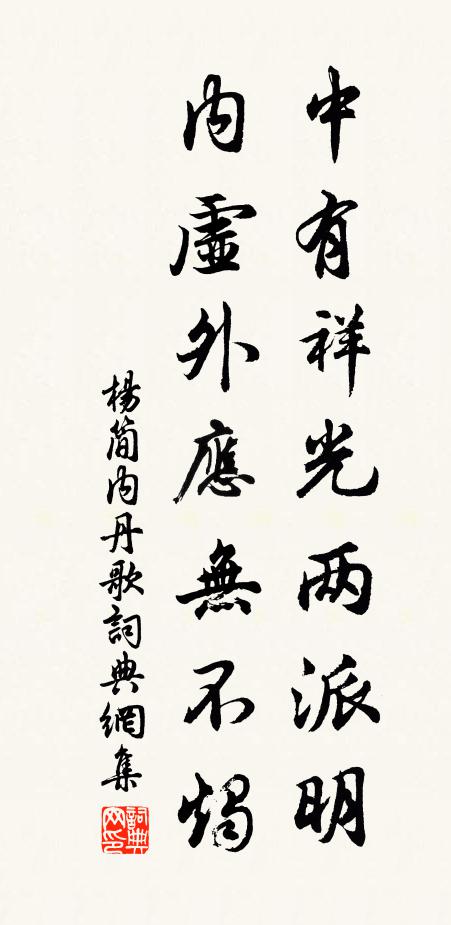 中有祥光两派明
内虚外應無不燭
楊简内丹歌詞典網集
詞典网印